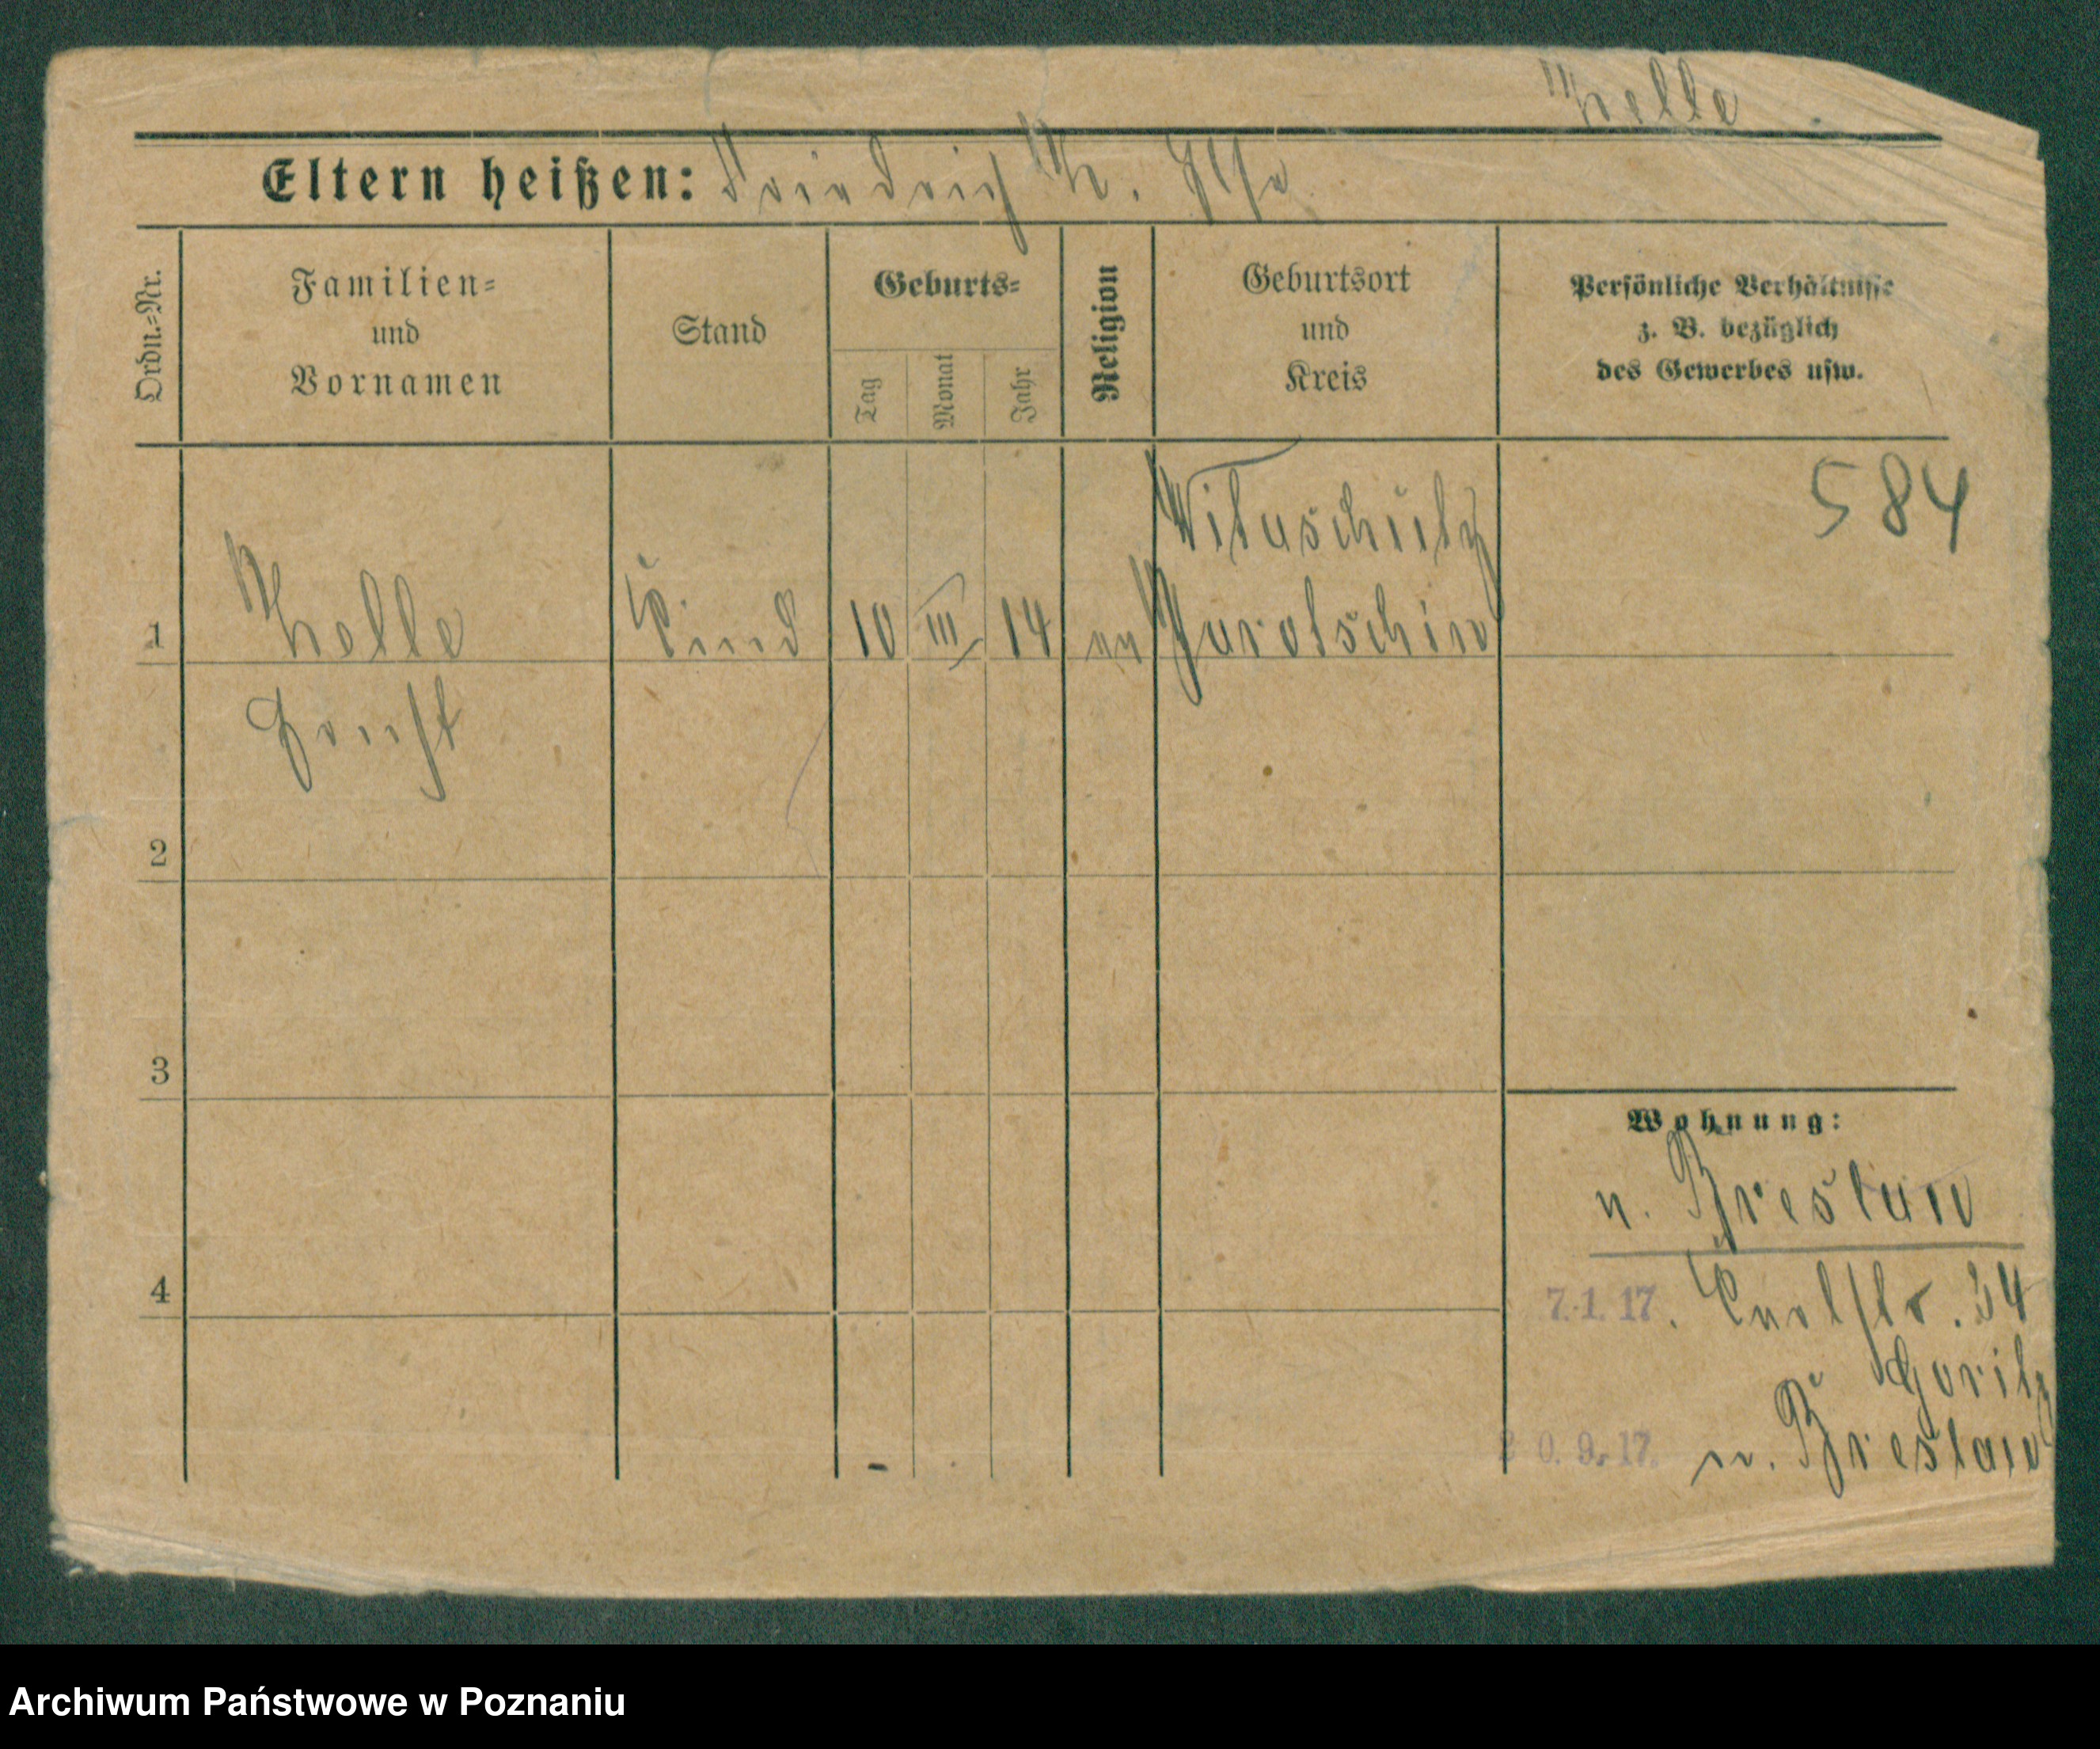 Thelle
Eltern heißen: Friedrich Th. Ilse
Ordn.=Nr.
Familien=
und
Vornamen
Stand
Geburts=
Tag
Monat
Jahr
Religion
Geburtsort
und
Kreis
Persönliche Verhältnisse
z. B. bezüglich
des Gewerbes usw.
584
Witaschütz
1 Thelle Kind 10 III 14 ev Jarotschin
Horst
2
3
Wohnung:
n. Breslau
4
7.1.17. Carlstr. 34
Goritz
20.9.17. n. Breslau
Archiwum Państwowe w Poznaniu